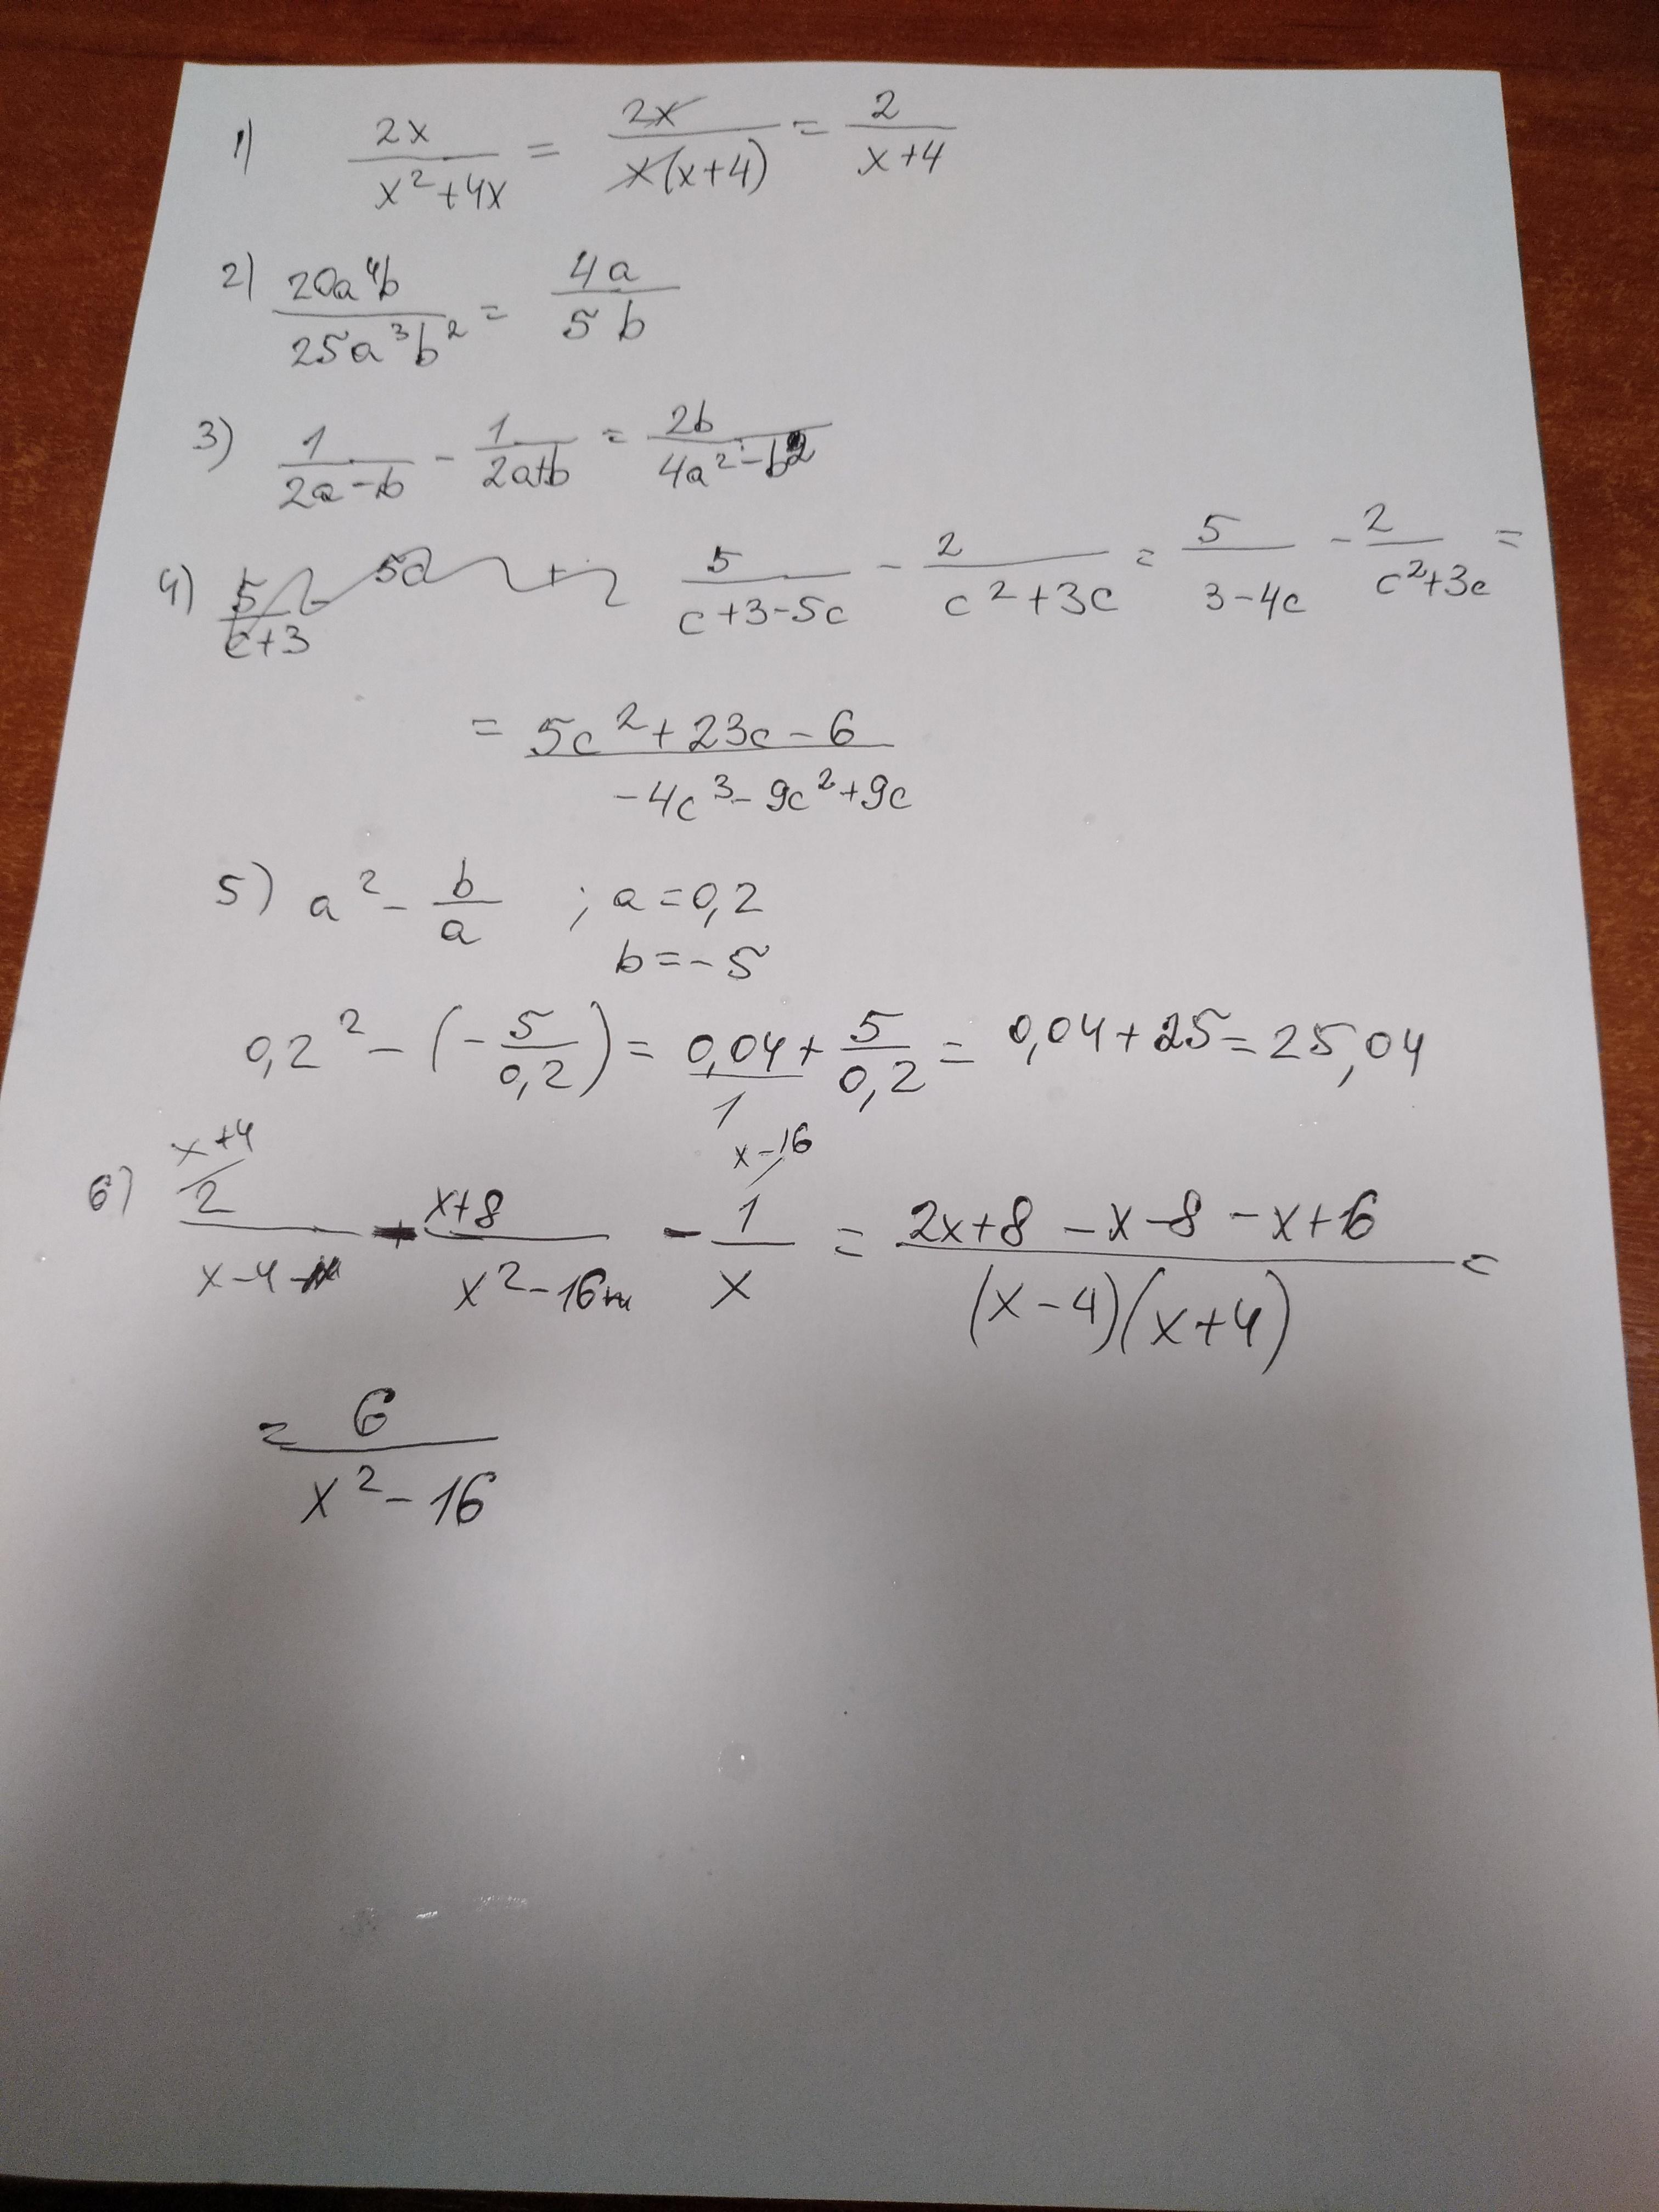 1) 2x/(x²+4x) = 2x/(x(x+4)) = 2/(x+4)
2) 20a⁴b/(25a³b²) = 4a/(5b)
3) 1/(2a-b) - 1/(2a+b) = 2b/(4a²-b²)
4) 5/(c+3) 5/(c+3-5c) - 2/(c²+3c) = 5/(3-4c) - 2/(c²+3c) =
= (5c²+23c-6)/(-4c³-9c²+9c)
5) a² - b/a ; a=0,2
b=-5
0,2² - (-5/0,2) = 0,04/1 + 5/0,2 = 0,04+25=25,04
x+4 x-16
6) 2/(x-4) - (x+8)/(x²-16) - 1/x = (2x+8-x-8-x+6)/((x-4)(x+4)) =
= 6/(x²-16)